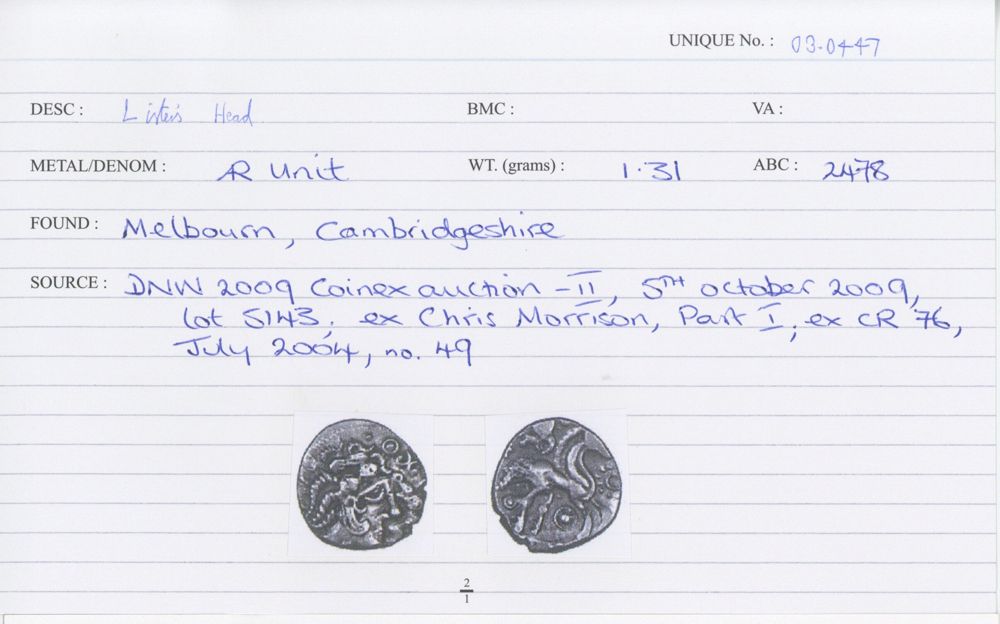 UNIQUE No. : 03-0447
DESC : Lister's Head BMC : VA :
METAL/DENOM : AR Unit WT. (grams) : 1.31 ABC : 2478
FOUND : Melbourn, Cambridgeshire
SOURCE : DNW 2009 Coinex auction - II, 5TH october 2009,
lot 5143, ex Chris Morrison, Part I, ex CR 76,
July 2004, no. 49
2
1